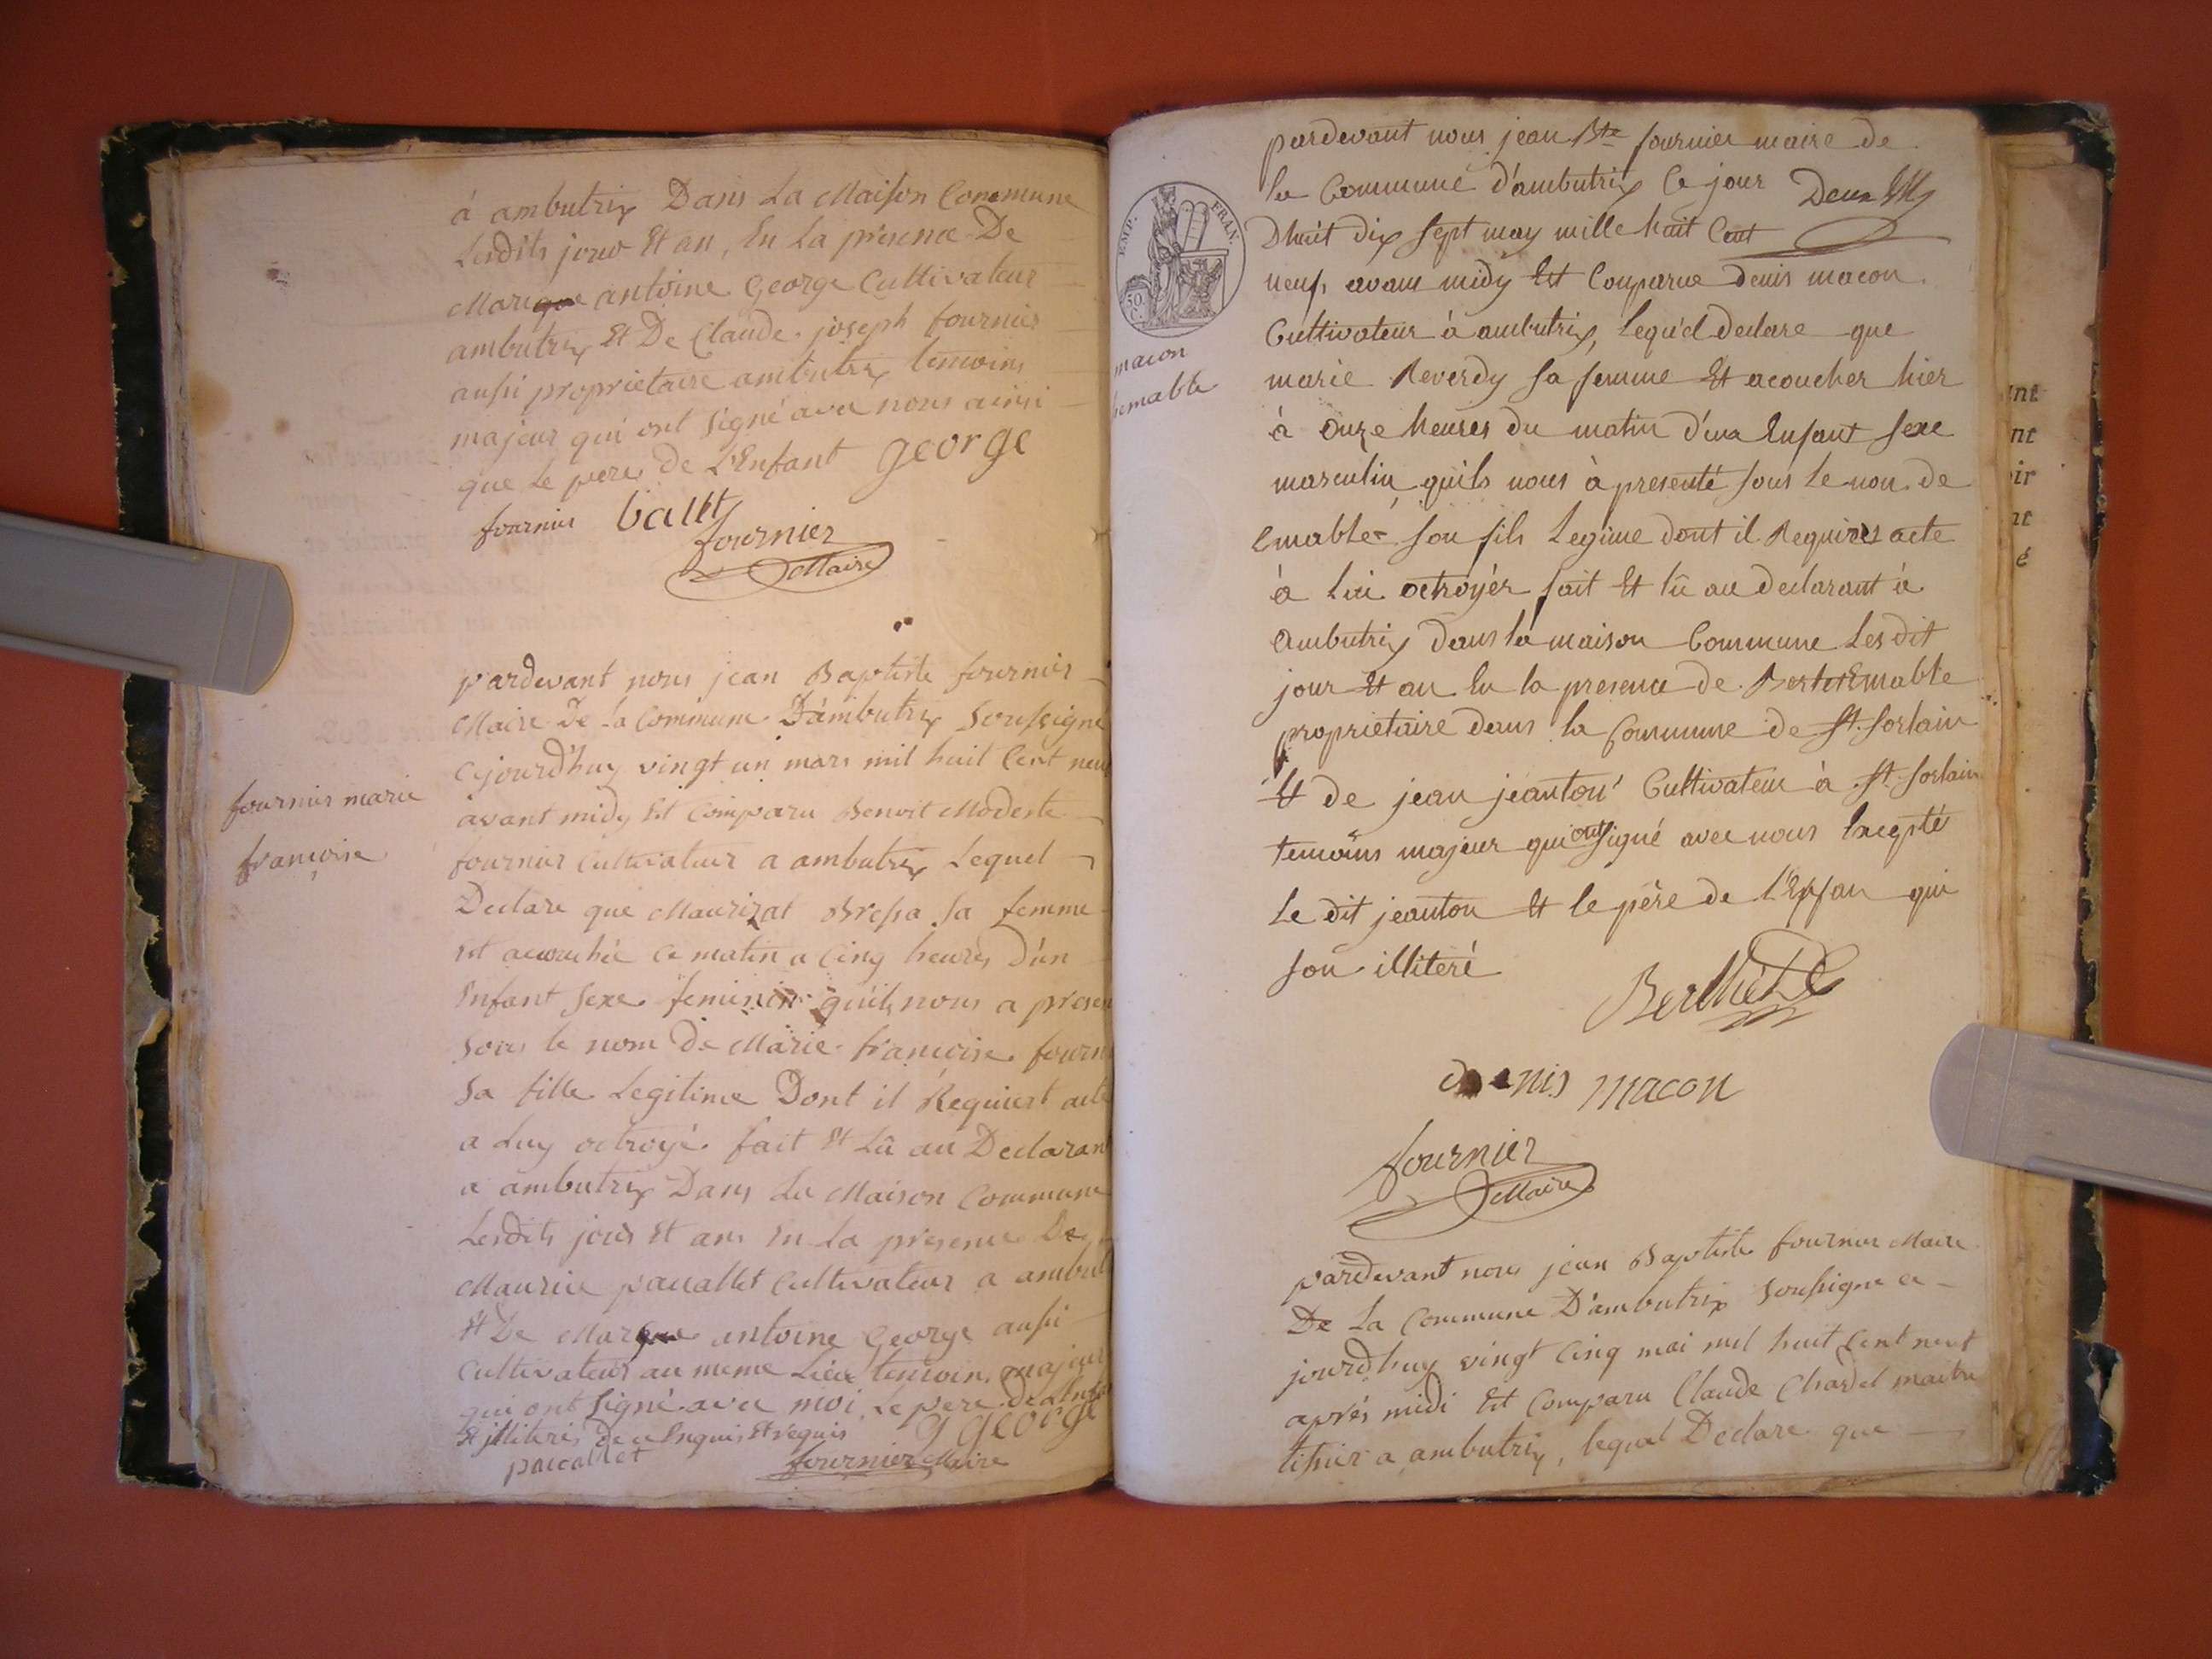 à ambutrix Dans La Maison Commune
Lesdits jour Et an, En La présence De
Marique antoine George Cultivateur
ambutrix Et De Claude joseph fournier
aussi proprietaire ambutrix temoins
majeur qui ont signé avec nous ainsi
que Le pere De L'Enfant george
fournier ballet
fournier
Maire
pardevant nous jean Baptiste fournier
Maire De La Commune D'ambutrix Soussigné
Cejourd'huy vingt un mars mil huit Cent neuf
avant midy Est Comparu Benoit Modeste
fournier marie
françoise
fournier Cultivateur a ambutrix Lequel
Declare que Maurizat Bressa Sa femme
est accouchée Ce matin a Cinq heures D'un
Enfant Sexe feminin qu'ils nous a presen
Sous le nom De Marie françoise fourn
Sa fille Legitime Dont il Requiert acte
a Luy octroyé fait Et Lû au Declarant
a ambutrix Dans La Maison Commune
Lesdits jour Et an En La presence De
Maurice paucallet Cultivateur a ambut
Et De Marque antoine George aussi
Cultivateur au meme Lieu temoins majeur
qui ont Signé avec moi Le pere De L'Enfa
Et illiteré De ce Enquis Et requis g george
paucallet fournier Maire
EMP. FRAN.
50 C.
pardevant nous jean Bte fournier maire de
la Commune d'ambutrix Ce jour
Dhuit dix sept may mille huit Cent
neuf, avant midy Est Comparue Denis macon
macon
emable
Cultivateur à ambutrix, lequel declare que
marie Reverdy sa femme Et acoucher hier
à Onze heures du matin d'un Enfant sexe
masculin quils nous à presenté sous le non de
Emable son fils Legime dont il Requires acte
à Lui octroyér fait Et lû au declarant à
Ambutrix dans la maison Commune Les dit
jour Et an En la presence de Emable
propriétaire dans la Commune de St. Sorlain
Et de jean jeanton Cultivateur à St. Sorlain
temoins majeur qui ont signé avec nous Excepté
Le dit jeanton Et le père de l'Enfan qui
son illiteré
Berthelet
denis macon
fournier
Maire
pardevant nous jean Baptiste fournier Maire
De La Commune D'ambutrix Soussigné ce
jourdhuy vingt Cinq mai mil huit Cent neuf
aprés midi Est Comparu Claude Chardel maitre
tissier a ambutrix, lequel Declare que